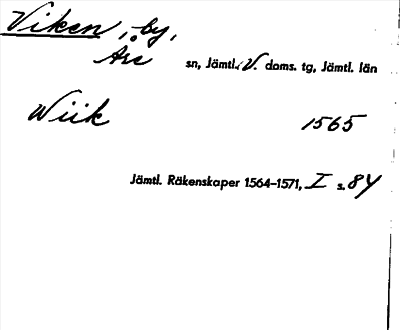 Viken, by,
Åre sn, Jämtl. V. doms. tg, Jämtl. län
Wiik 1565
Jämtl. Räkenskaper 1564–1571, I s. 84